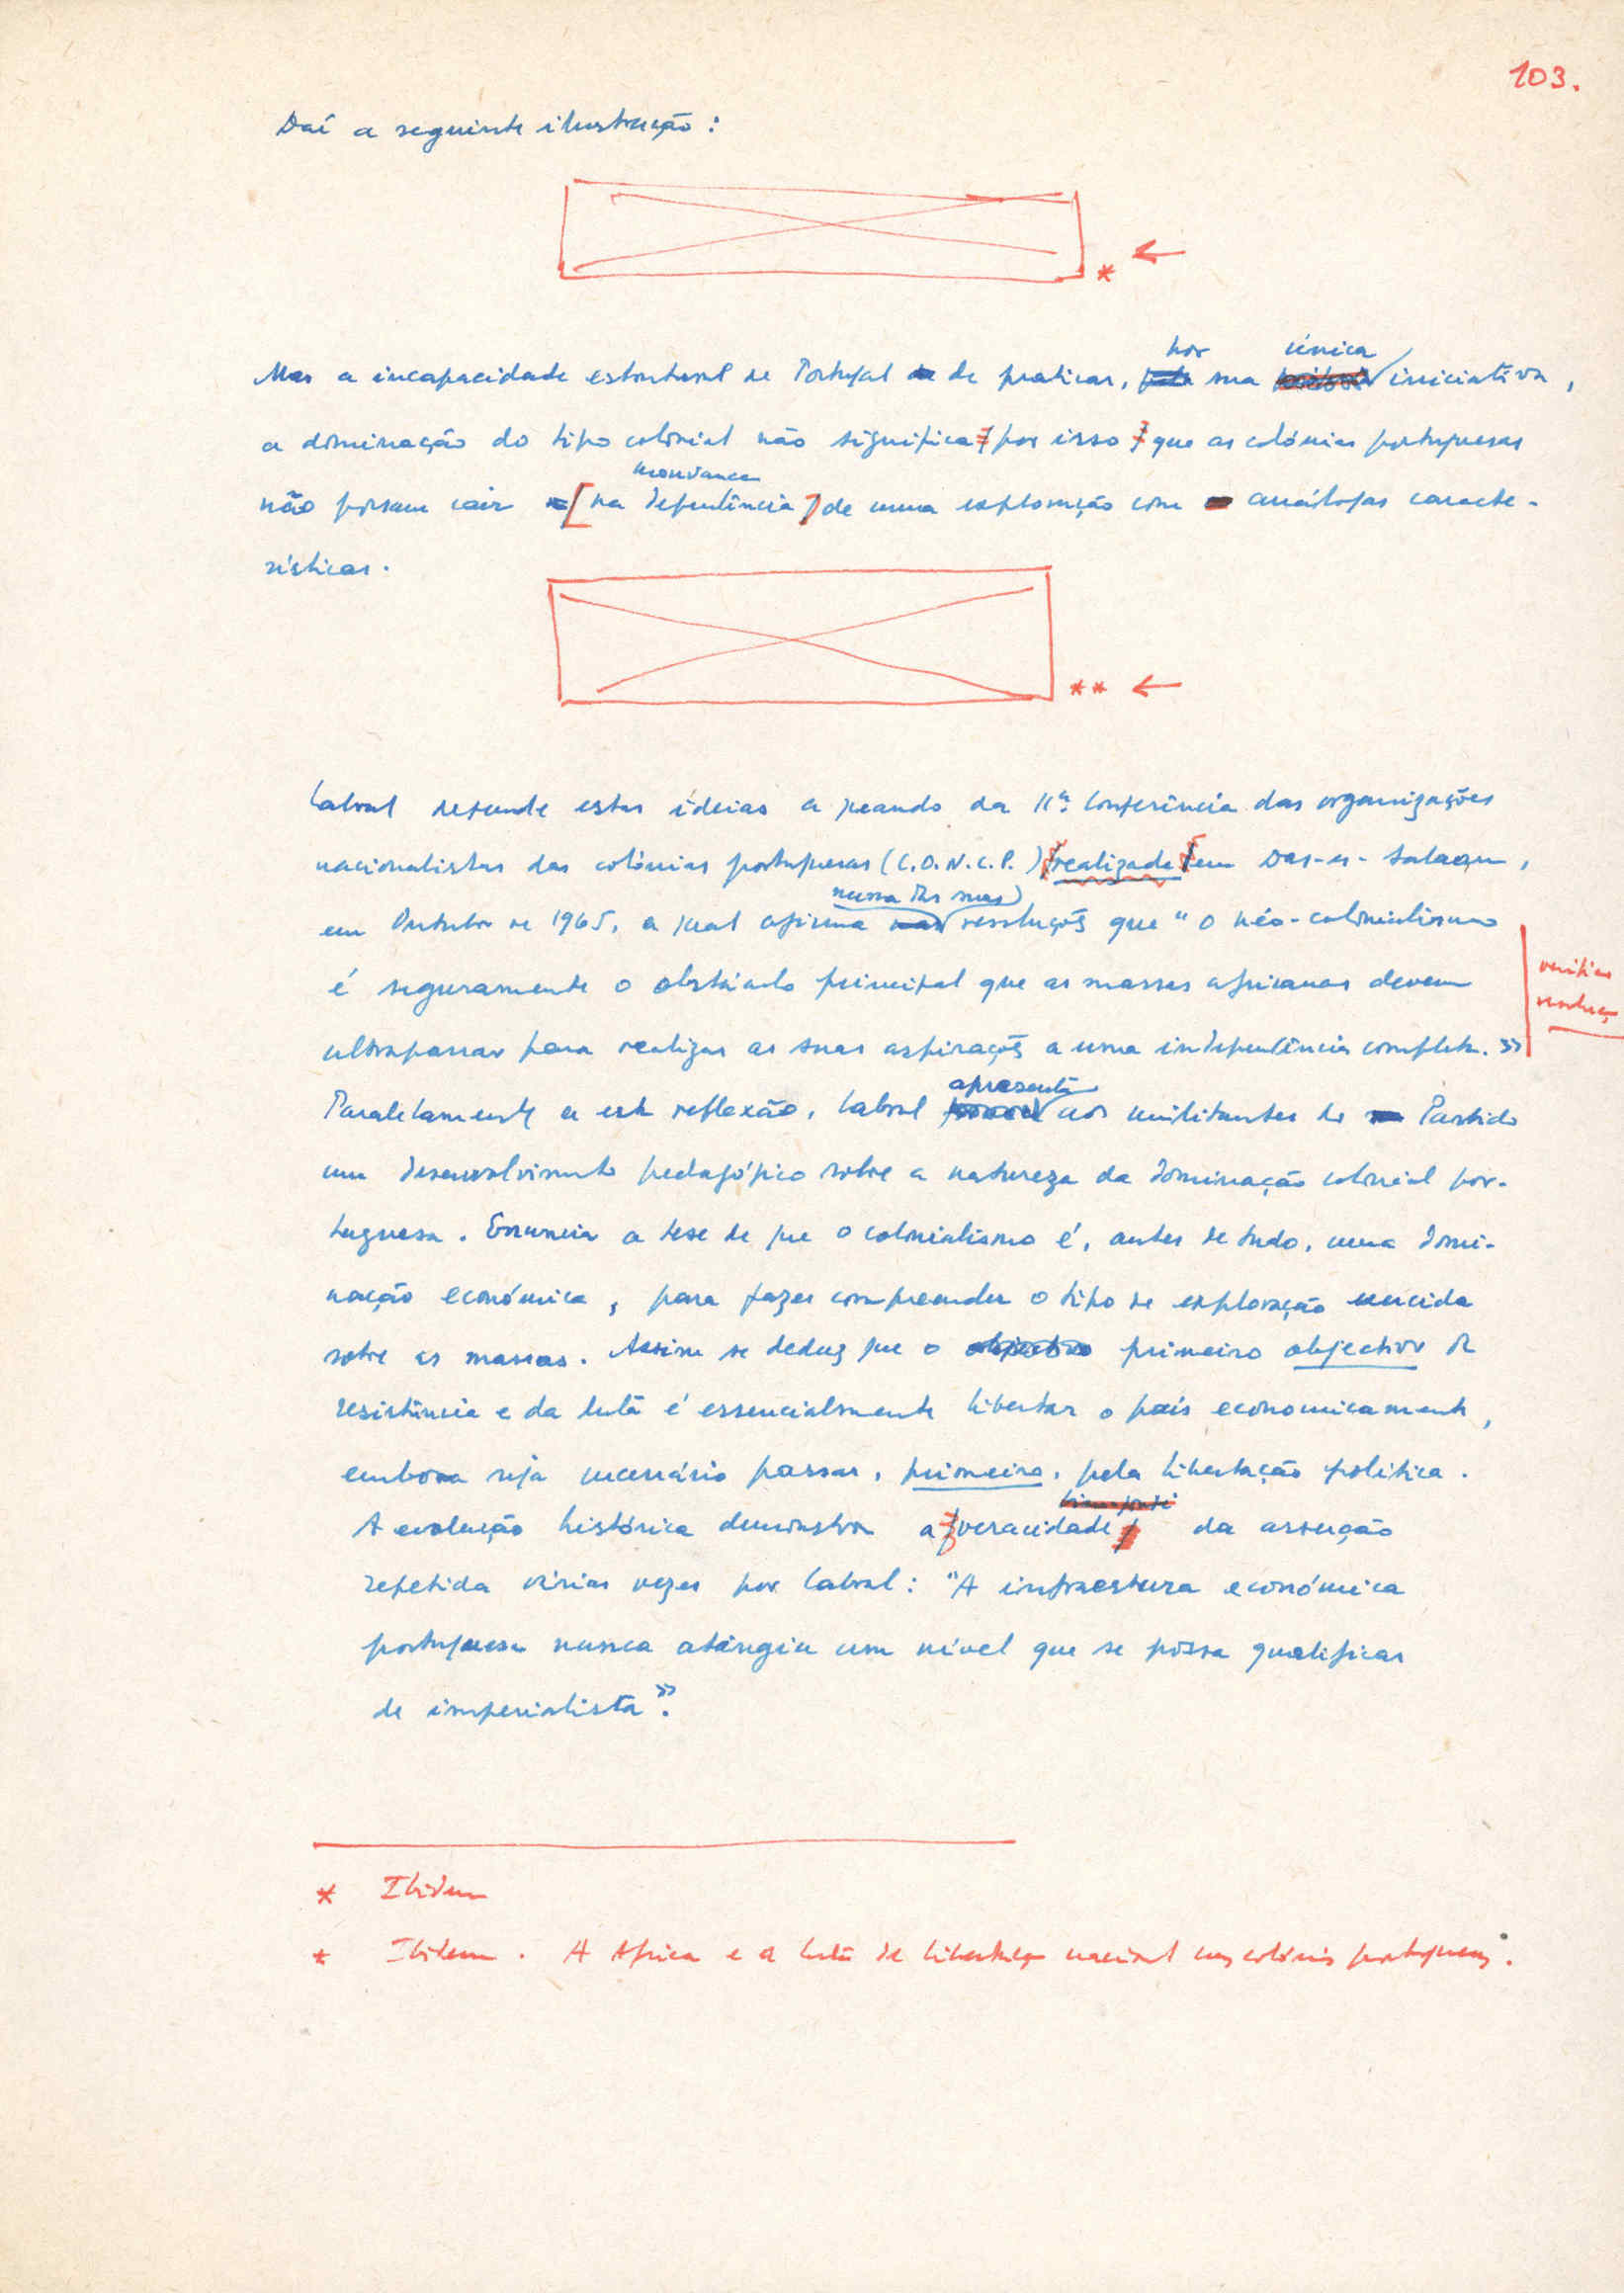 103.
Daí a seguinte ilustração :
* ←
por única
Mas a incapacidade estrutural de Portugal de praticar, sua iniciativa,
a dominação do tipo colonial não significa por isso que as colónias portuguesas
não possam cair [na dependência] de uma exploração com análogas caracte-
rísticas.
** ←
Cabral defende estas ideias a quando da IIª Conferência das organizações
nacionalistas das colónias portuguesas (C.O.N.C.P.) realizada em Dar-es-Salaam,
numa das suas
em Outubro de 1965, a qual afirma resoluções que "O néo-colonialismo
é seguramente o obstáculo principal que as massas africanas devem
verificar
resoluç
ultrapassar para realizar as suas aspirações a uma independência completa.»
apresenta
Paralelamente a esta reflexão, Cabral aos militantes do Partido
um desenvolvimento pedagógico sobre a natureza da dominação colonial por-
tuguesa. Enuncia a tese de que o colonialismo é, antes de tudo, uma domi-
nação económica, para fazer compreender o tipo de exploração exercida
sobre as massas. Assim se deduz que o primeiro objectivo da
resistência e da luta é essencialmente libertar o país economicamente,
embora seja necessário passar, primeiro, pela libertação política.
A evolução histórica demonstra a veracidade da asserção
repetida várias vezes por Cabral: "A infraestura económica
portuguesa nunca atingiu um nível que se possa qualificar
de imperialista».
* Ibidem
* Ibidem. A Africa e a luta de libertaç nacional nas colónias portuguesas.